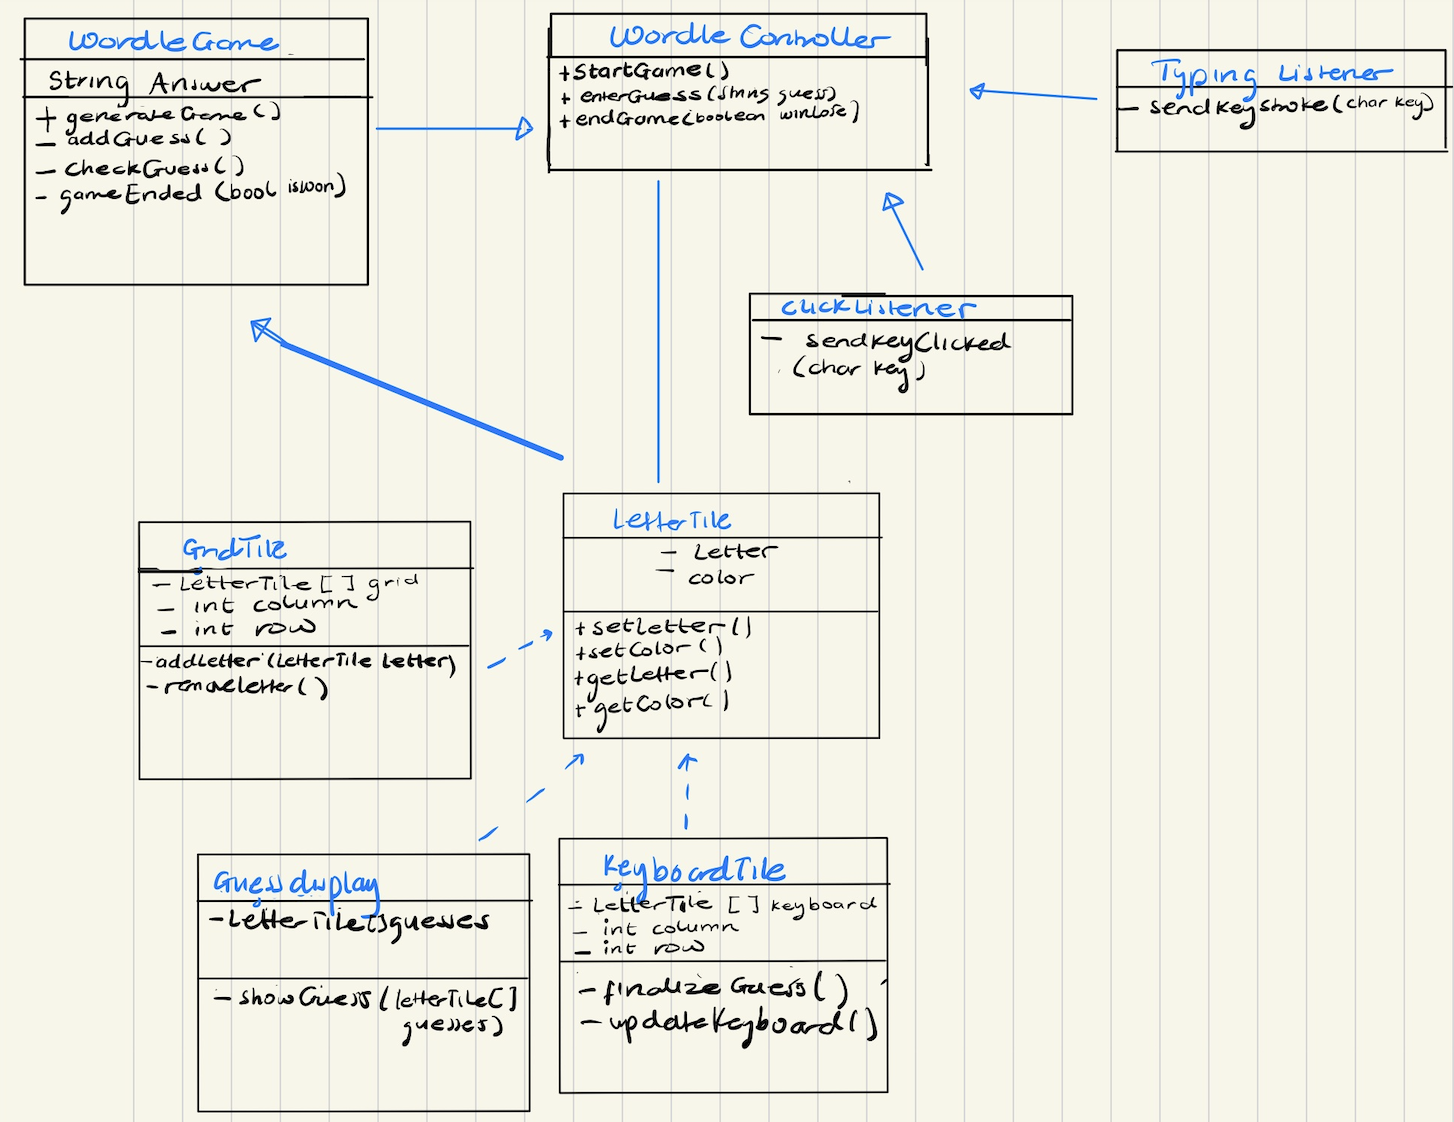 WordleGame
String Answer
+ generateGame()
- addGuess( )
- checkGuess()
- gameEnded (bool iswon)
Wordle Controller
+StartGame()
+ enterGuess(String guess)
+endGame(boolean winLose)
Typing Listener
- sendKeyStroke(char key)
clickListener
- sendKeyClicked
(char key)
LetterTile
- Letter
- color
+setLetter()
+setColor()
+getLetter()
+ getColor()
GridTile
- LetterTile[ ] grid
- int column
- int row
-addLetter(LetterTile letter)
-removeletter()
Guessdisplay
-LetterTile[]guesses
- showGuess(letterTile[]
guesses)
KeyboardTile
- LetterTile [ ] keyboard
- int column
- int row
- finalizeGuess()
- updateKeyboard()